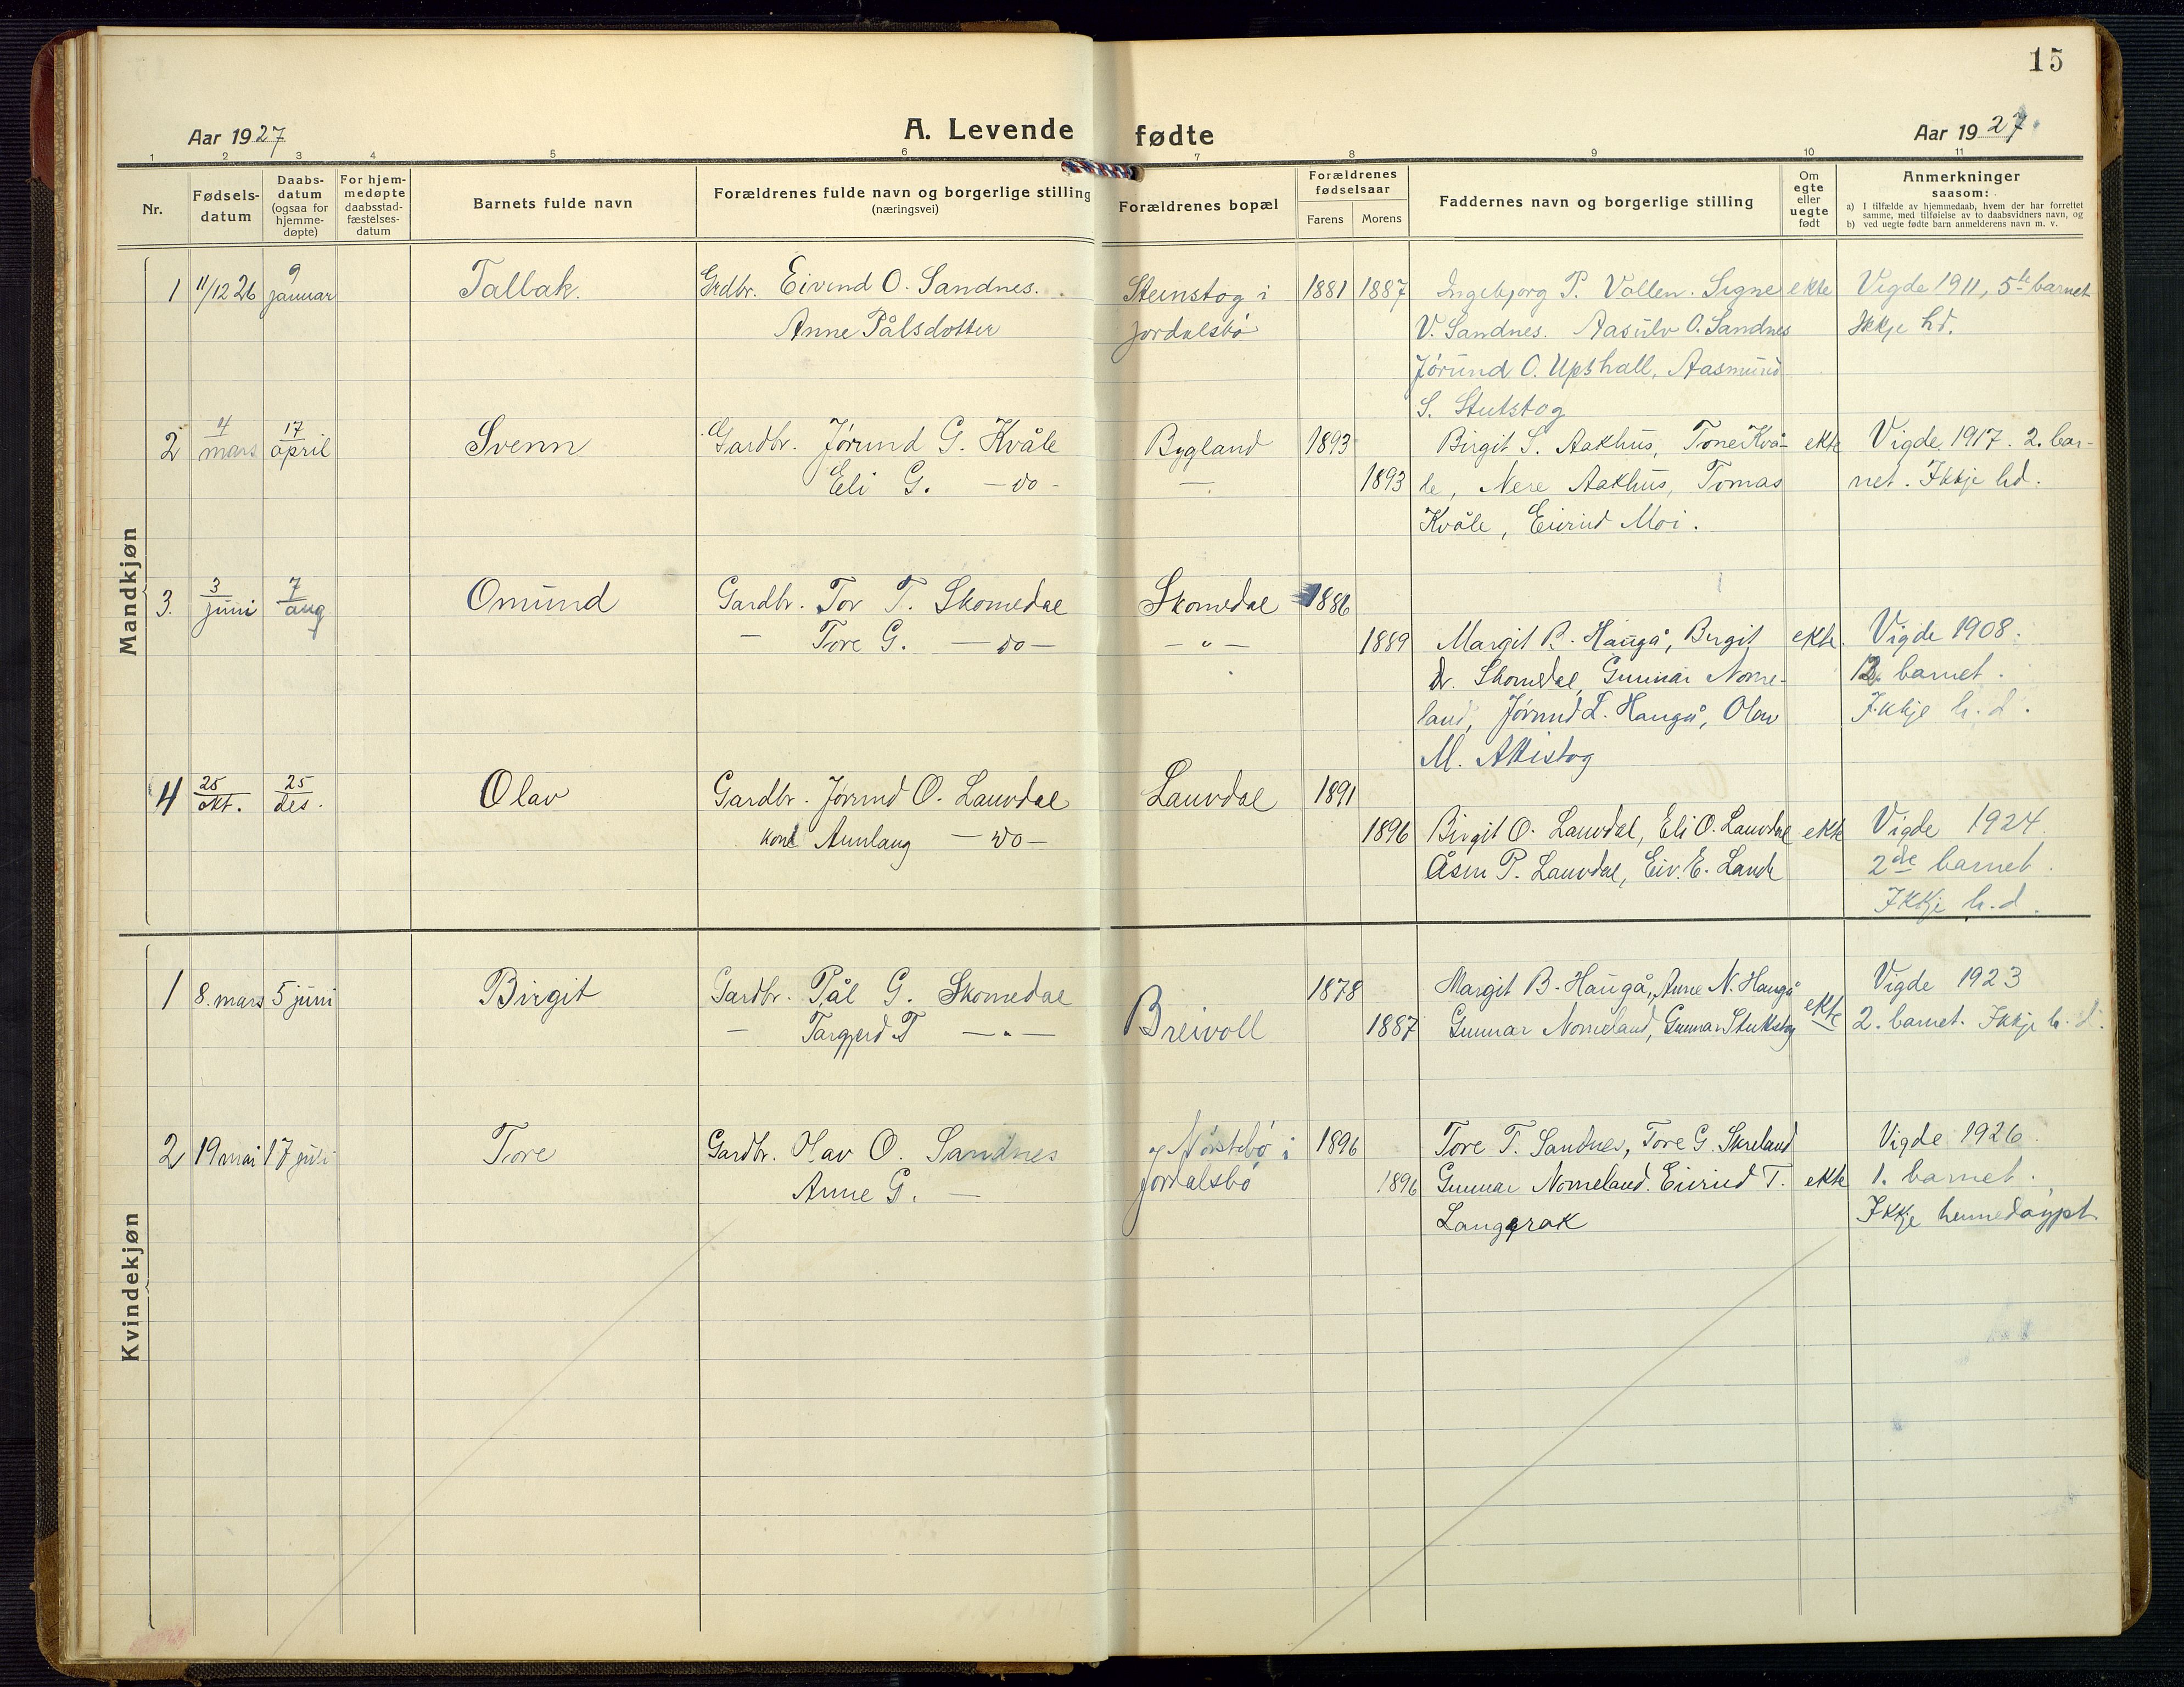 15
Aar 1927
A. Levende fødte
Aar 1927.
1 2 3 4 5 6 7 8 9 10 11
Nr.
Fødselsdatum
Daabsdatum (ogsaa for hjemmedøpte)
For hjemmedøpte daabsstadfæstelsesdatum
Barnets fulde navn
Forældrenes fulde navn og borgerlige stilling
(næringsvei)
Forældrenes bopæl
Forældrenes fødselsaar
Farens Morens
Faddernes navn og borgerlige stilling
Om egte eller uegte født
Anmerkninger
saasom:
a) I tilfælde av hjemmedaab, hvem der har forrettet samme, med tilføielse av to daabsvidners navn, og
b) ved uegte fødte barn anmelderens navn m. v.
Mandkjøn
1 11/12 26 9 januar Talbak. Grdbr. Eivind O. Sandnes. Steinstog i 1881 1887 Ingebjørg P. Vollen. Signe ekte Vigde 1911, 5te barnet
Anne Pålsdotter Jordalsbø V. Sandnes. Aasulv O. Sandnes Ikkje hd.
Jórund O. Upshall, Aasmund
S. Stutstog
2 4 mars 17 april Svenn Gardbr. Jørund G. Kvåle Bygland 1893 Birgit S. Aakhus, Tone Kvå- ekte Vigde 1917. 2. bar-
Eli G. — do - — 1893 le, Nere Aakhus, Tomas net. Ikkje hd.
Kvåle, Eivind Moi.
3. 3 juni 7 aug Omund Gardbr. Tor T. Skomedal Skomedal 1886
— Tore G. — do — — " — 1889 Margit B. Haugå, Birgit ekte. Vigde 1908.
Skomedal, Gunnar Nome- 12. barnet.
land, Jørund T. Haugå, Olav Ikkje h. d.
M. Attistog
4 25 okt. 25 des. Olav Gardbr. Jørund O. Lauvdal Lauvdal 1891
kone Aunlaug — do — 1896 Birgit O. Lauvdal, Eli O. Lauvdal ekte Vigde 1924.
Åsm P. Lauvdal, Eiv. E. Lande 2de barnet.
Ikkje h. d.
Kvindekjøn
1 8. mars 5 juni Birgit Gardbr. Pål G. Skomedal Breivoll 1878 Margit B. Haugå, Anne N. Haugå ekte Vigde 1923
— Targjerd T — " — 1887 Gunnar Nomeland, Gunnar Stutstog 2. barnet. Ikkje h. d.
2 19 mai 17 juli Tore Gardbr. Olav O. Sandnes Nørstebø i 1896 Tore T. Sandnes, Tore G. Skreland Vigde 1926.
Anne G. — Jordalsbø 1896 Gunnar Nomeland. Eivind T. ekte 1. barnet.
Langerak Ikkje heimedøypt